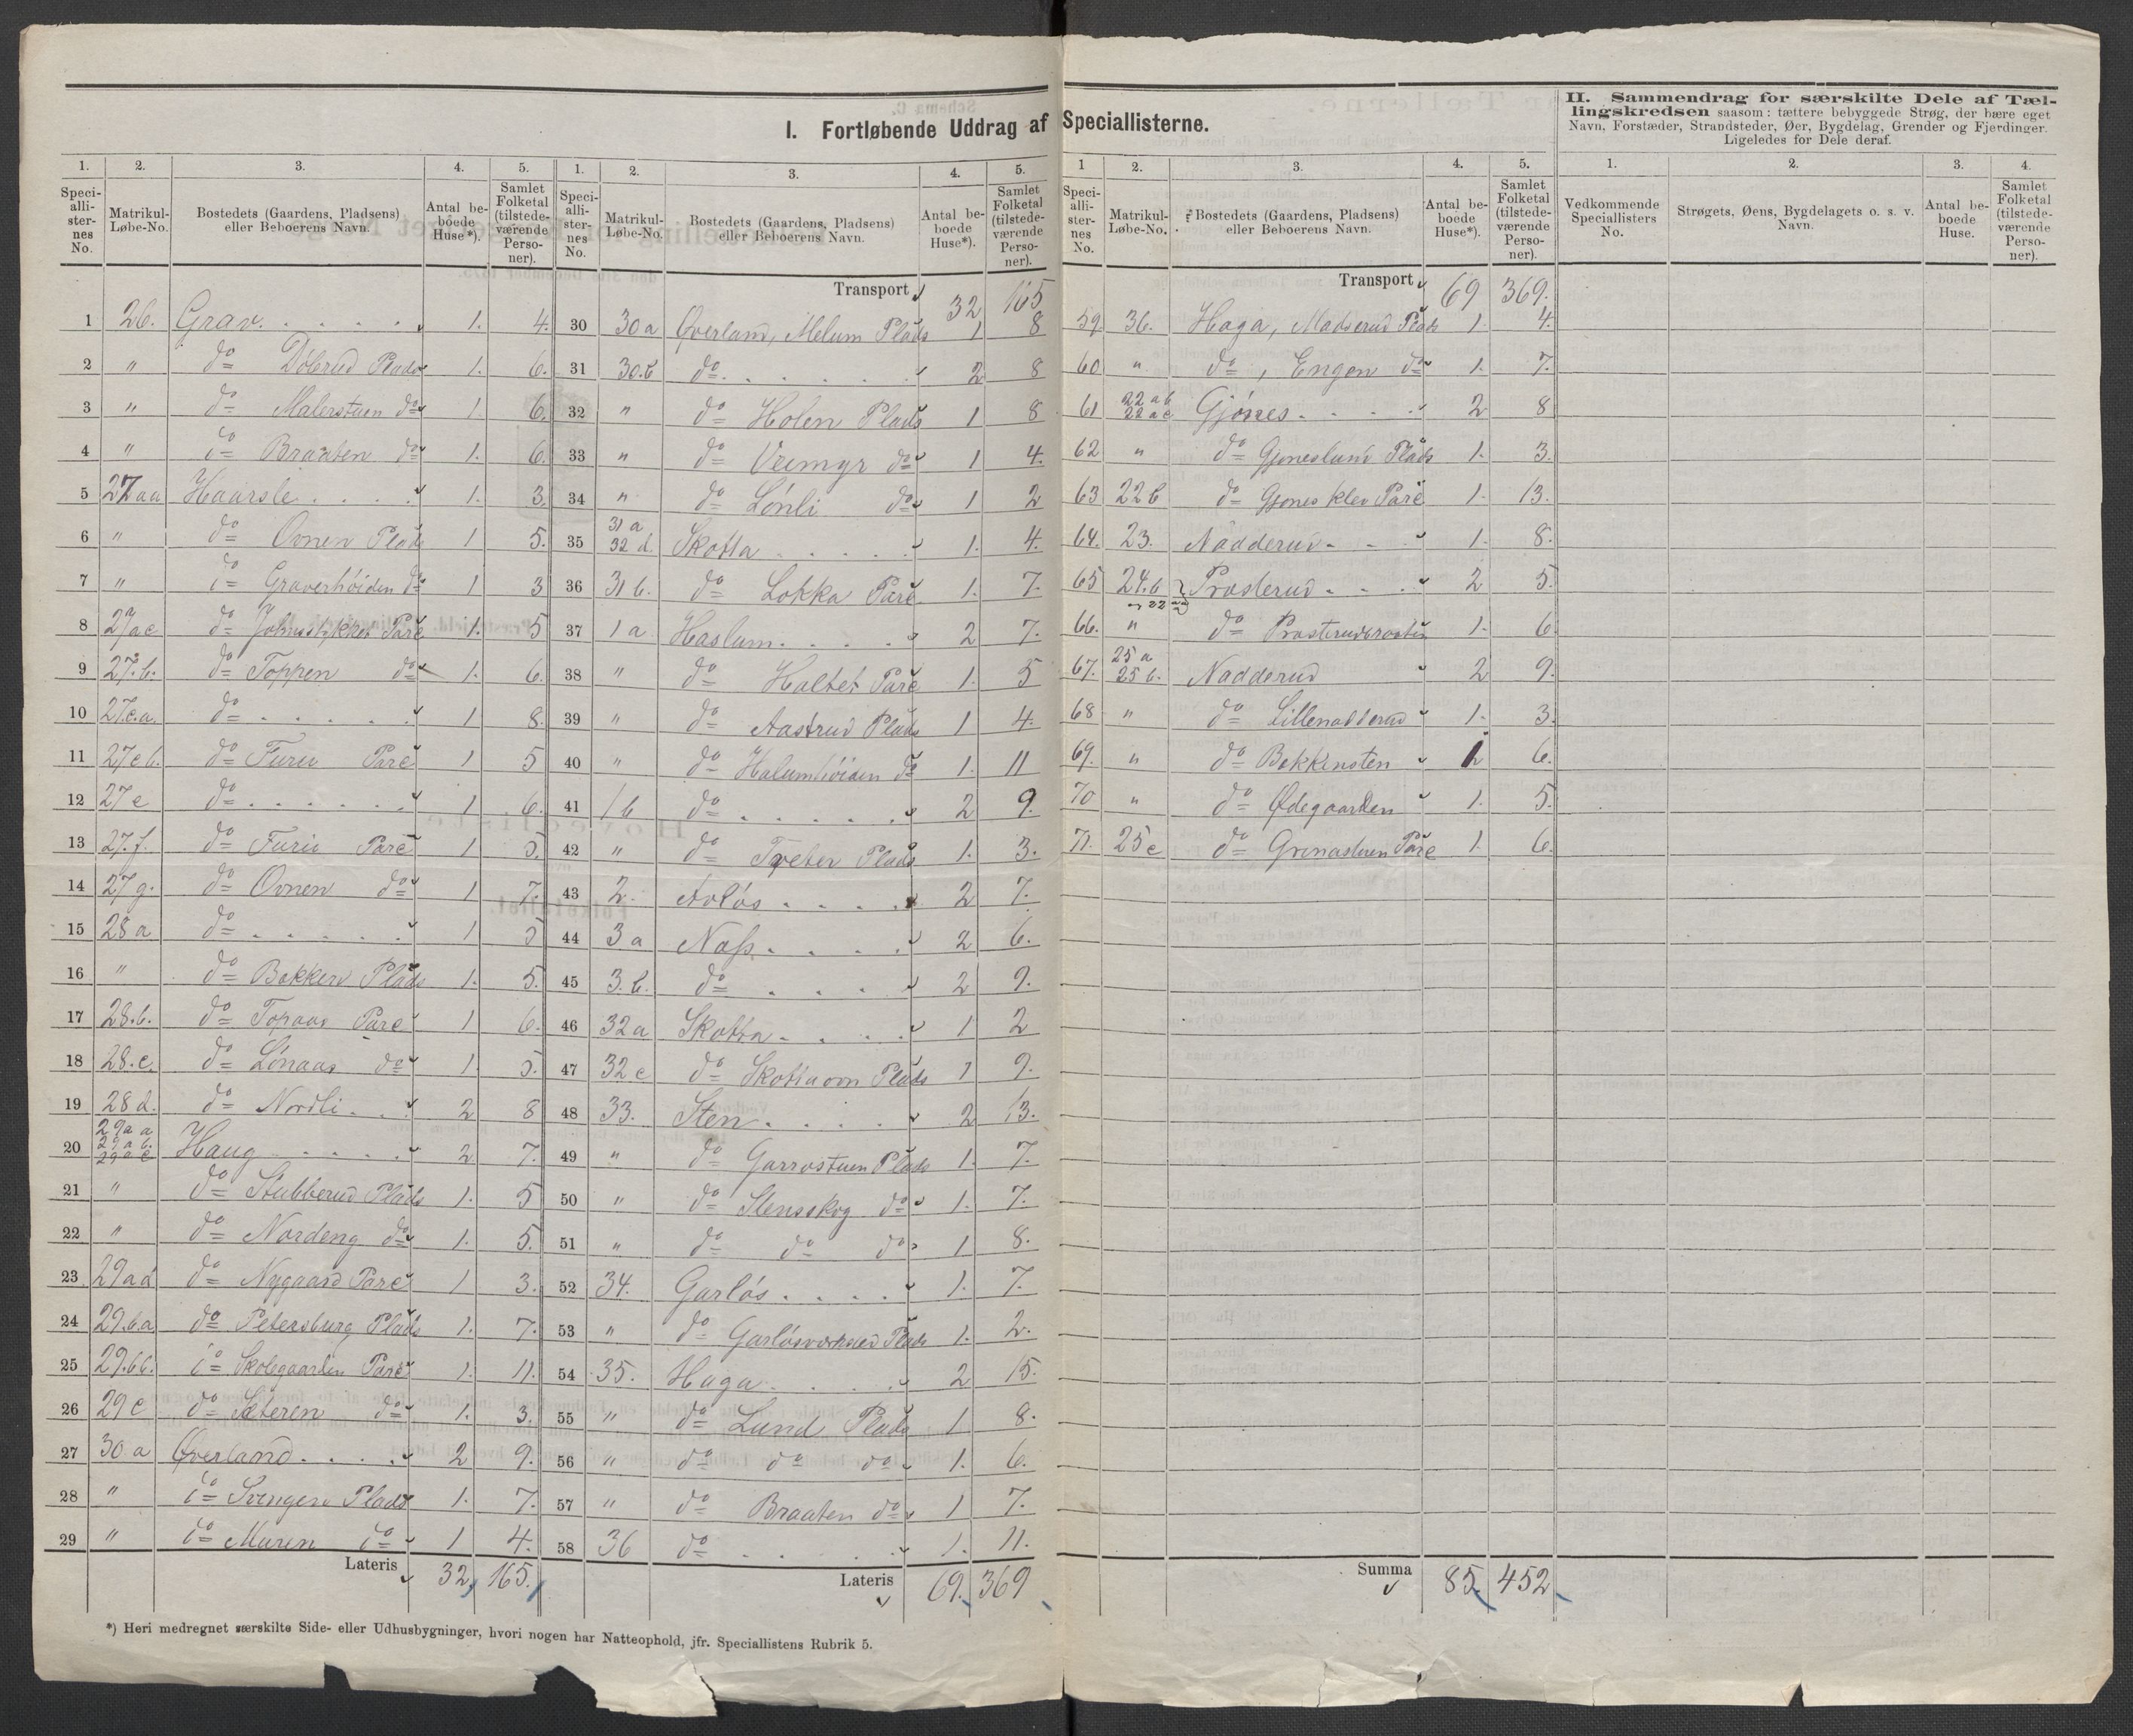 I. Fortløbende Uddrag af Speciallisterne.
1. 2. 3. 4. 5.
Speciallisternes No. Matrikul-Løbe-No. Bostedets (Gaardens, Pladsens) eller Beboerens Navn. Antal beboede Huse*). Samlet Folketal (tilstedeværende Personer).
1 26. Grav. . . . . 1. 4.
2 " do Dølerud Plads 1. 6.
3 " do Malerstuen do 1. 6.
4 " do Braaten do 1. 6.
5 27 aa Haarsle . . . . 1. 3.
6 " do Ovnen Plads 1 5.
7 " do Graverhöiden do 1 3
8 27 ac do Johnsstykket Parc 1. 5
9 27.b. do Toppen do 1. 6.
10 27.c.a. do . . . . . 1 8.
11 27 c b. do Furu Parc 1 5
12 27 e do . . . . . 1 6.
13 27.f. do Furu Parc 1 5.
14 27 g. do Ovnen do 1 7.
15 28 a do . . . . . 1 5
16 " do Bakken Plads 1. 5.
17 28.b. do Topaas Parc 1 6.
18 28.c. do Lönaas do 1 5.
19 28 d. do Nordli . . 2 8
20 29 a a 29 a b. 29 a c Haug . . . . . 2. 7.
21 " do Stubberud Plads 1. 5
22 " do Nordeng do 1. 5.
23 29 a d do Nygaard Parc 1 3.
24 29.b.a do Petersburg Plads 1. 7.
25 29.b b. do Skolegaarden Parc 1. 11.
26 29 c do Sæteren do 1. 3.
27 30 a Øverland . . . . 2 9.
28 " do Svingen Plads 1. 7.
29 " do Muren do 1 4.
Lateris 32, 165.
1. 2. 3. 4. 5.
Speciallisternes No. Matrikul-Løbe-No. Bostedets (Gaardens, Pladsens) eller Beboerens Navn. Antal beboede Huse*). Samlet Folketal (tilstedeværende Personer).
Transport 32 165
30 30 a Øverland, Melum Plads 1 8
31 30.b do . . . . . 2 8
32 " do Holen Plads 1 8
33 " do Veemyr do 1 4.
34 " do Lönli do 1 2
35 31 a 32 d. Skotta . . . . . 1. 4.
36 31 b. do Løkka Parc 1. 7.
37 1 a Haslum . . . . 2 7.
38 " do Haltet Parc 1. 5
39 " do Aastrud Plads 1 4.
40 " do Halumhöiden do 1. 11
41 1 b do . . . . . 2 9.
42 " do Tveter Plads 1. 3.
43 2. Avlös . . . . 2 7.
44 3 a Næss . . . . 2 6.
45 3. b. do . . . . 2 9.
46 32 a Skotta . . . . 1 2
47 32 c do Skottaovn Plads 1 9.
48 33. Sten . . . . . 2 13.
49 " do Garrostuen Plads 1. 7.
50 " do Stensskog do 1. 7.
51 " do do do 1 8.
52 34. Garlös . . . . 1. 7.
53 " do Garlösvænded Plads 1. 2.
54 35. Haga . . . . 2 15.
55 " do Lund Plads 1 8.
56 " do do do 1. 6.
57 " do Braaten do 1 7.
58 36 do . . . . . 1. 11.
Lateris 69. 369
1 2. 3. 4. 5.
Speciallisternes No. Matrikul-Løbe-No. Bostedets (Gaardens, Pladsens) eller Beboerens Navn. Antal beboede Huse*). Samlet Folketal (tilstedeværende Personer).
Transport 69 369.
59. 36. Haga, Madserud Plads 1. 4.
60 " do, Engen do 1. 7.
61 22 a b 22 a c Gjönes . . . . 2 8
62 " do Gjøneslund Plads 1. 3.
63 22 b do Gjønes klev Parc 1. 13.
64. 23. Nadderud . . . 1. 8.
65 24. b Prosterud . . . . 2 5.
66. " do Prosterudbraaten 1. 6.
67. 25 a 25 b. Nadderud 2 9.
68 " do Lillenadderud 1. 3.
69. " do Bekkensten 1 6.
70 " do Ødegaarden 1. 5.
71. 25 c do Grinastuen Parc 1. 6.
Summa 85. 452
II. Sammendrag for særskilte Dele af Tællingskredsen saasom: tættere bebyggede Strøg, der bære eget Navn, Forstæder, Strandsteder, Øer, Bygdelag, Grender og Fjerdinger. Ligeledes for Dele deraf.
1. 2. 3. 4.
Vedkommende Speciallisters No. Strøgets, Øens, Bygdelagets o. s. v. Navn. Antal beboede Huse. Samlet Folketal (tilstedeværende Personer).
*) Heri medregnet særskilte Side- eller Udhusbygninger, hvori nogen har Natteophold, jfr. Speciallistens Rubrik 5.